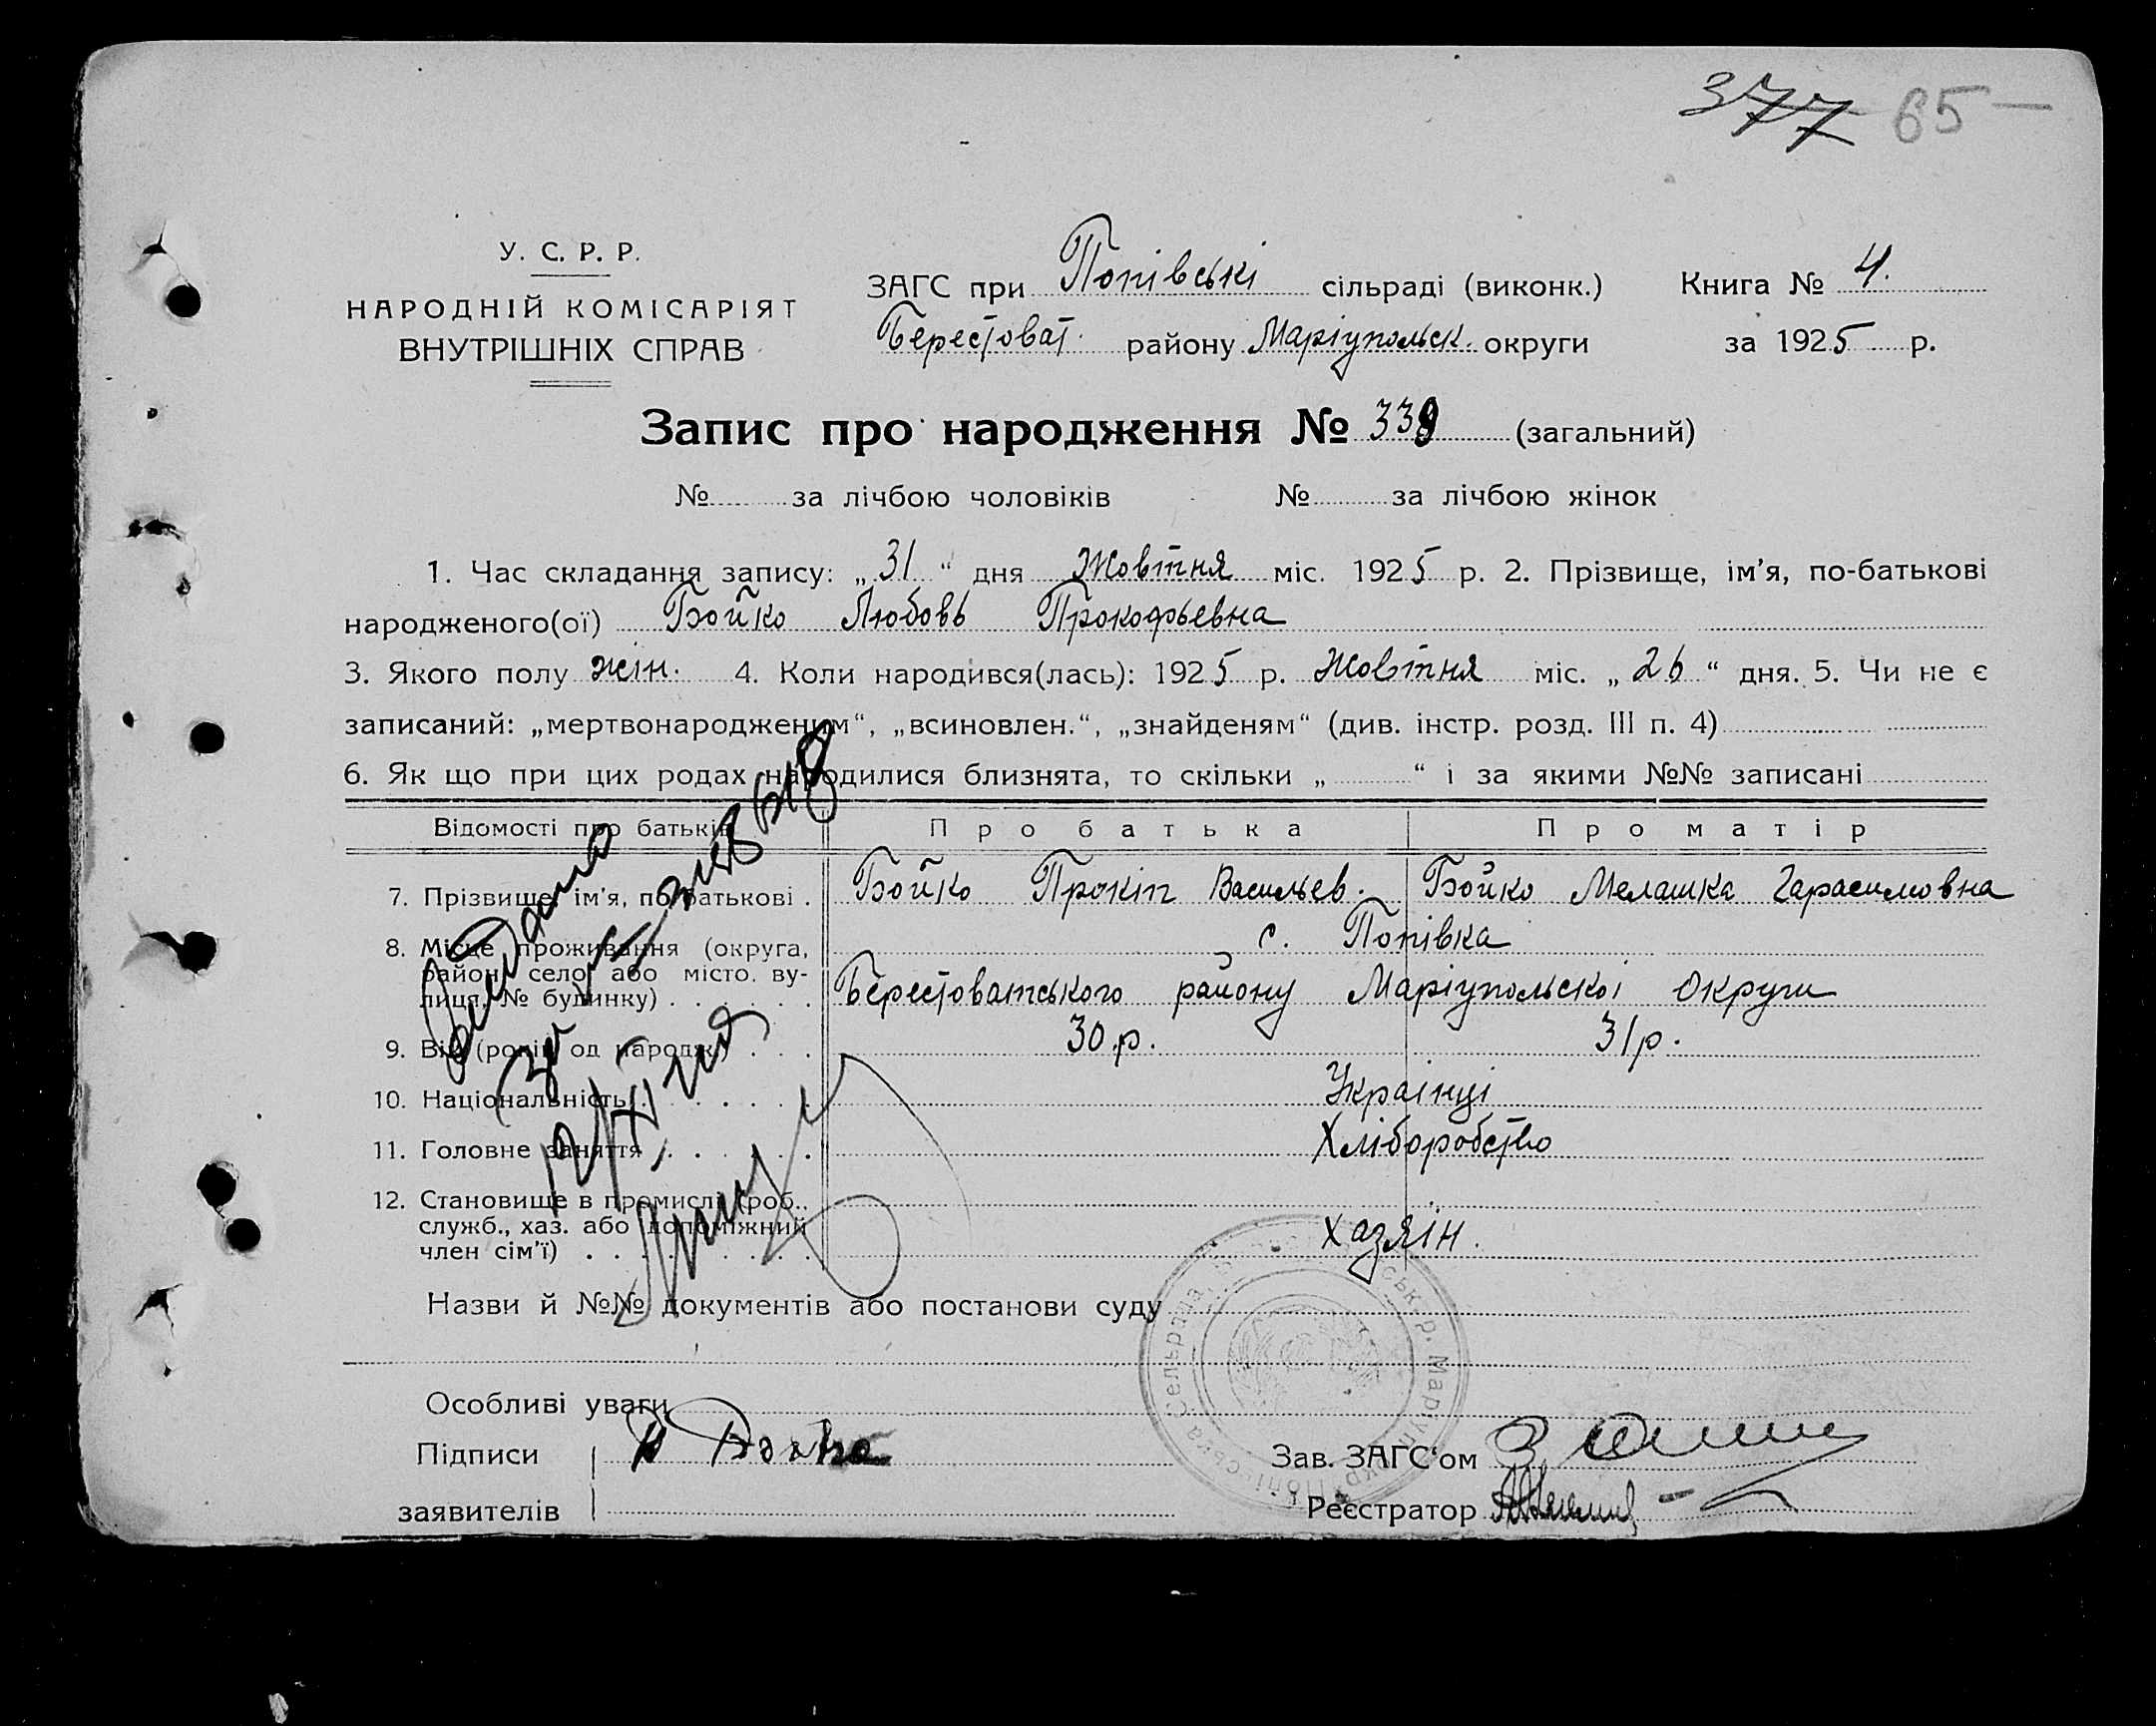 377 65 —
У. С. Р. Р.
НАРОДНІЙ КОМІСАРІЯТ
ВНУТРІШНІХ СПРАВ
ЗАГС при Попівські сільраді (виконк.) Книга № 4.
Берестоват. району Маріупольск. округи за 1925 р.
Запис про народження № 339 (загальний)
№ за лічбою чоловіків № за лічбою жінок
1. Час складання запису: „31“ дня Жовтня міс. 1925 р. 2. Прізвище, ім’я, по-батькові
народженого(ої) Бойко Любовь Прокофьевна
3. Якого полу жін. 4. Коли народився(лась): 1925 р. Жовтня міс. „26“ дня. 5. Чи не є
записаний: „мертвонародженим“, „всиновлен.“, „знайденям“ (див. інстр. розд. III п. 4)
6. Як що при цих родах народилися близнята, то скільки „ “ і за якими №№ записані
Відомості про батьків Про батька Про матір
7. Прізвище, ім’я, по батькові . Бойко Прокіп Васильев. Бойко Мелашка Гарасимовна
8. Місце проживання (округа, с. Попівка
район, село або місто, ву-
лиця, № будинку) . . . . . . Берестоватського району Маріупольскоі Округи
9. Вік (років од народж.) . . . 30.р. 31р.
10. Національність . . . . . . Украінці
11. Головне заняття . . . . . . Хліборобство
12. Становище в промислі (роб.,
служб., хаз. або допоміжний
член сім’ї) . . . . . . . . Хазяін.
Назви й №№ документів або постанови суду
Особливі уваги
Підписи Бойко Зав. ЗАГС‘ом
заявителів Реєстратор